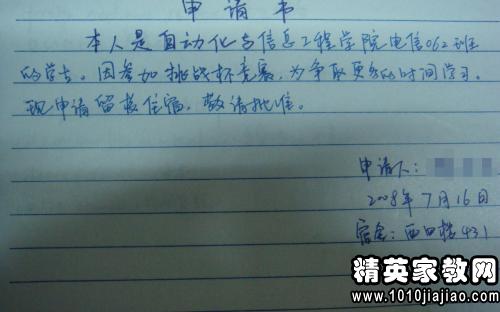 申请书
本人是自动化与信息工程学院电信062班
的学生。因参加挑战杯竞赛，为争取更多的时间学习。
现申请留校住宿，敬请批准。
申请人：
2008年7月16日
宿舍：西四楼431
精英家教网
www.1010jiajiao.com